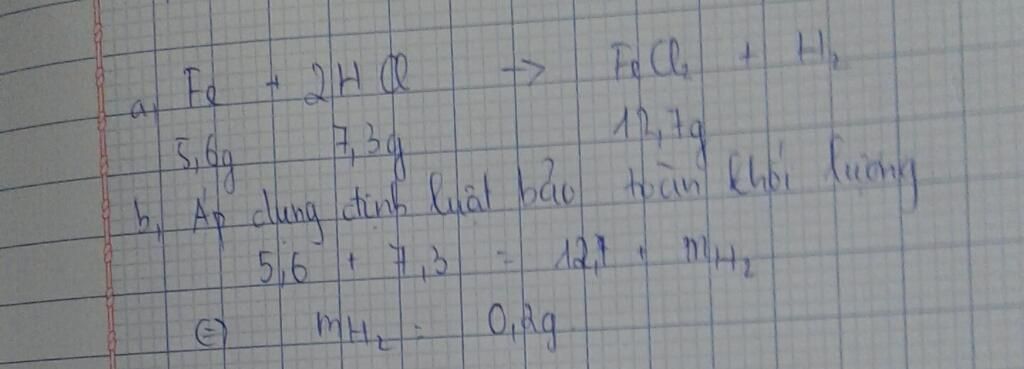 a, Fe + 2HCl -> FeCl₂ + H₂
5,6g 7,3g 12,7g
b, Áp dụng định luật bảo toàn khối lượng
5,6 + 7,3 = 12,7 + mH₂
⇔ mH₂ = 0,2g